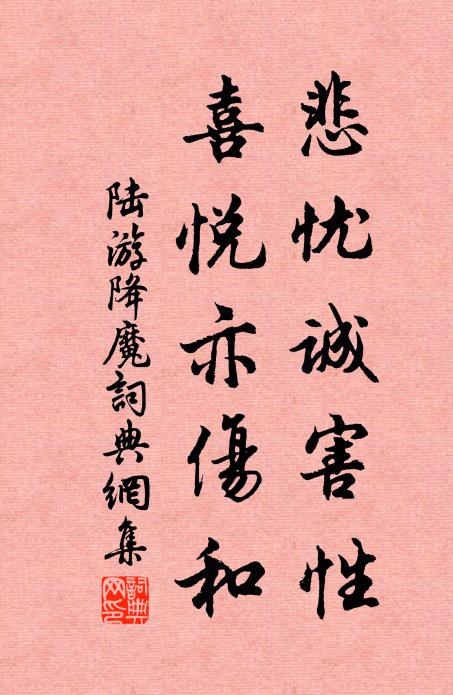 悲忧誠害性
喜悦亦傷和
陆游降魔詞典網集
詞典网印